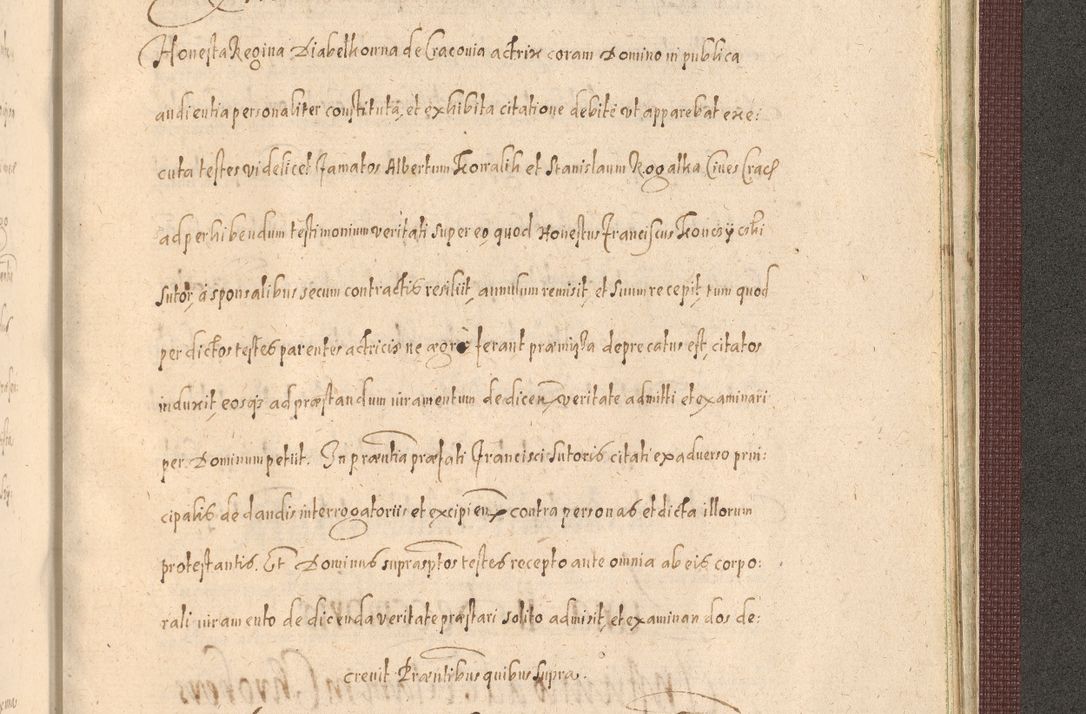 Honesta Regina Diabelkowna de Cracouia actrix coram Domino in publica
audientia personaliter constituta, et exhibita citatione debite vt apparebat exe:
cuta testes videlicet famatos Albertum Kowalik et Stanislaum Rogalka Ciues Crac
ad perhibendum testimonium veritati super eo quod Honestus Franciscus
Sutor, a sponsalibus secum contractis resiliit, annulum remisit, et suum recepit, tum quod
per dictos testes parentes actricis ne ægre ferant præmissa deprecatus est, citatos
induxit, eosq3 ad præstandum iuramentum de dicen veritate admitti et examinari
per Dominum petiit. In præntia præfati Francisci Sutoris citati ex aduerso prin:
cipalis de dandis interrogatoriis et excipien contra personas et dicta illorum
protestantis. Et Dominus suprasptos testes recepto ante omnia ab eis corpo:
rali iuramento de dicenda veritate præstari solito admisit, et examinandos de:
creuit Præntibus quibus supra.